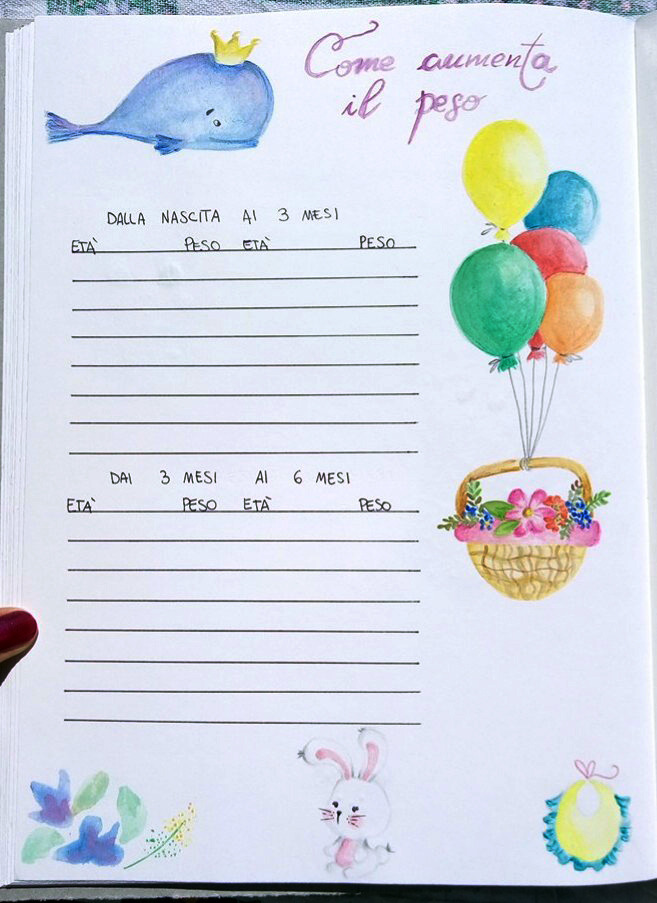 Come aumenta
il peso
DALLA NASCITA AI 3 MESI
ETÀ PESO ETÀ PESO
DAI 3 MESI AI 6 MESI
ETÀ PESO ETÀ PESO